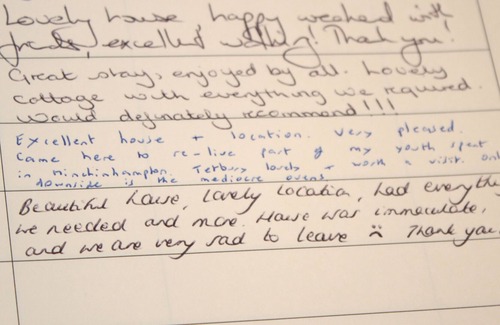 Lovely house happy weekend with
friends, excellent walking! Thank you!
Great stay, enjoyed by all. Lovely
cottage with everything we required.
Would definately recommend!!!
Excellent house + location. Very pleased.
Came here to re-live part of my youth spent
in Minchinhampton. Tetbury lovely + worth a visit. Only
downside is the mediocre oven.
Beautiful house, lovely location, had everythi
we needed and more. House was immaculate,
and we are very sad to leave ☹ Thank you